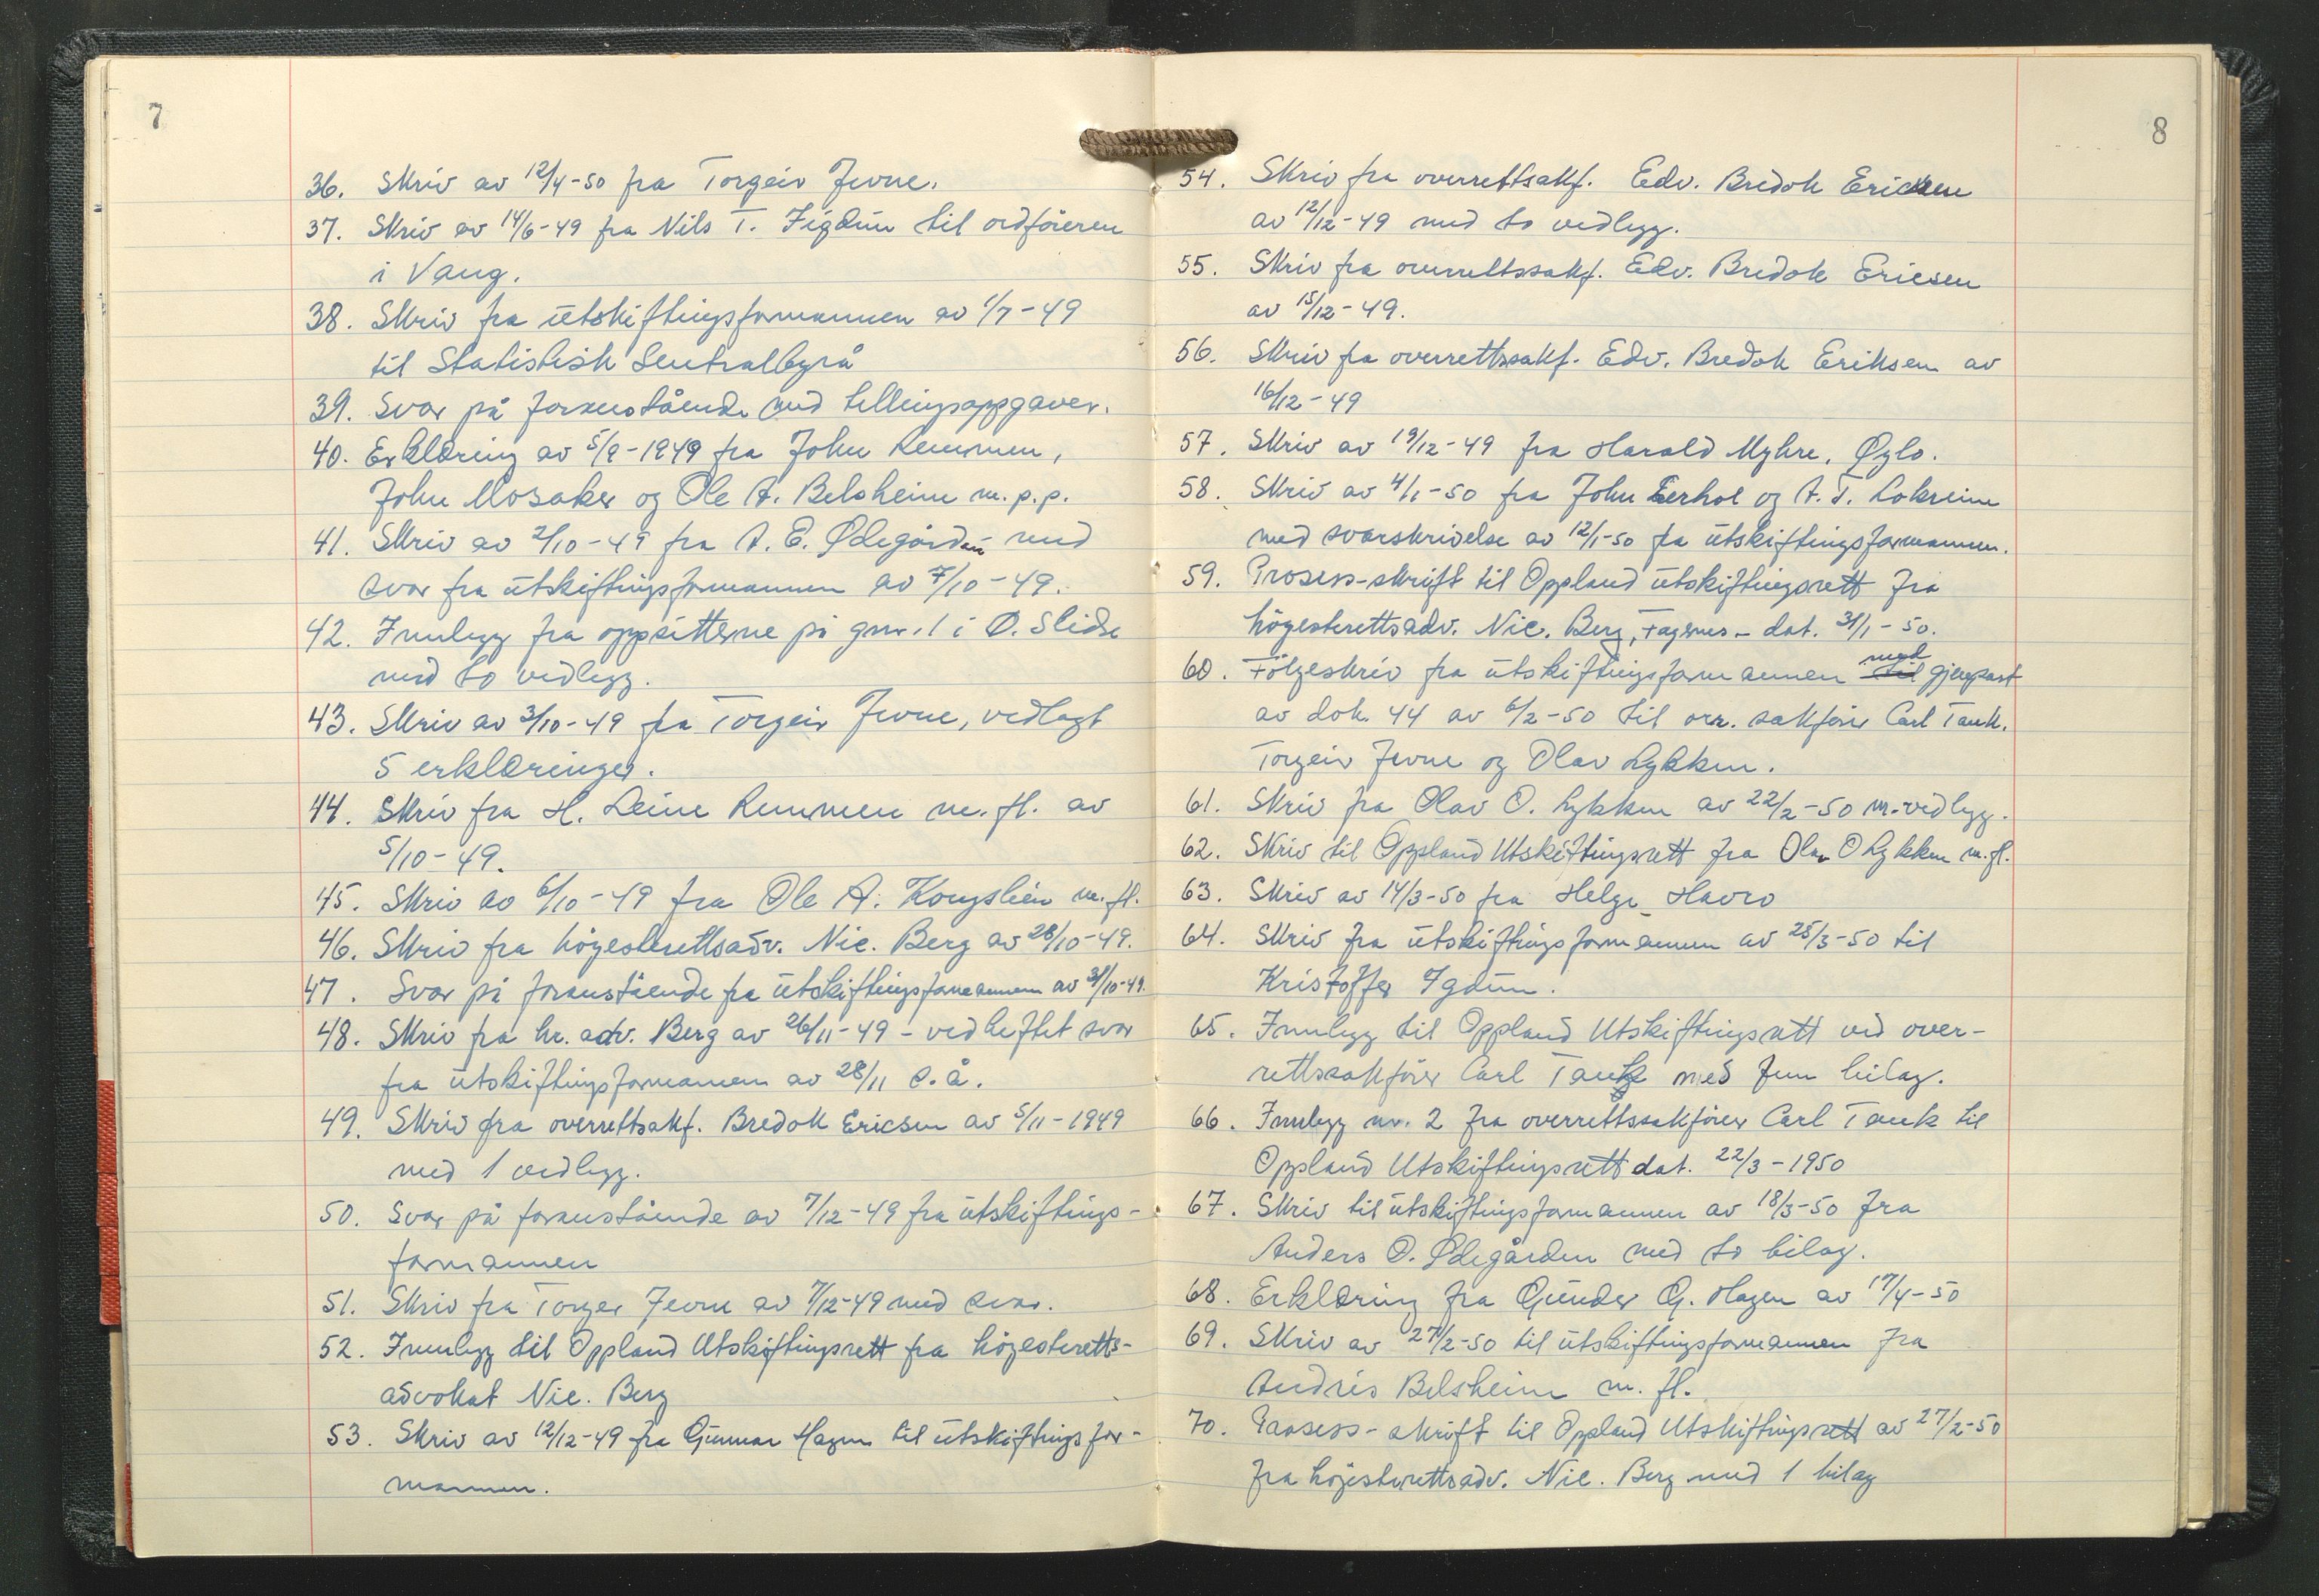 7
36. Skriv av 12/4-50 fra Torgeir Jevne.
37. Skriv av 14/6-49 fra Nils T. Igdun til ordföreren
i Vang.
38. Skriv fra utskiftingsformannen av 1/7-49
til Statistisk Sentralbyrå
39. Svar på foranstående med tellingsoppgaver.
40. Erklæring av 5/9-1949 fra John Remmen,
John Mosaker og Ole A. Belsheim m.p.p.
41. Skriv av 2/10-49 fra A. E. Ødegården med
svar fra utskiftingsformannen av 7/10-49.
42. Innlegg fra oppsitterne på gnr. 1 i Ø. Slidre
med to vedlegg.
43. Skriv av 3/10-49 fra Torgeir Jevne, vedlagt
5 erklæringer.
44. Skriv fra H. Leine Remmen m. fl. av
5/10-49.
45. Skriv av 6/10-49 fra Ole A. Kongslien m. fl.
46. Skriv fra högesterettsadv. Nic. Berg av 28/10-49.
47. Svar på foranstående fra utskiftingsformannen av 31/10-49.
48. Skriv fra hr. adv. Berg av 26/11-49 - vedheftet svar
fra utskiftingsformannen av 28/11 s.å.
49. Skriv fra overrettsakf. Bredok Ericsen av 5/11-1949
med 1 vedlegg.
50. Svar på foranstående av 7/12-49 fra utskiftings-
formannen
51. Skriv fra Torger Jevne av 7/12-49 med svar.
52. Innlegg til Oppland Utskiftingsrett fra högesteretts-
advokat Nic. Berg
53. Skriv av 12/12-49 fra Gunnar Hagen til utskiftingsfor-
mannen.
8
54. Skriv fra overrettsakf. Edv. Bredok Ericksen
av 12/12-49 med to vedlegg.
55. Skriv fra overrettssakf. Edv. Bredok Ericsen
av 15/12-49.
56. Skriv fra overrettssakf. Edv. Bredok Eriksen av
16/12-49
57. Skriv av 19/12-49 fra Harald Myhre, Øylo.
58. Skriv av 4/1-50 fra John Eerhol og A. T. Lokreim
med svarskrivelse av 12/1-50 fra utskiftingsformannen.
59. Prosess-skrift til Oppland utskiftingsrett fra
högesterettsadv. Nic. Berg, Fagernes - dat. 31/1-50.
60. Fölgeskriv fra utskiftingsformannen med gjenpart
av dok. 44 av 6/2-50 til orr. sakförer Carl Tank.
Torgeir Jevne og Olav Lykken.
61. Skriv fra Olav O. Lykken av 22/2-50 m. vedlegg.
62. Skriv til Oppland Utskiftingsrett fra Olav O Lykken m. fl.
63. Skriv av 14/3-50 fra Helge Havro
64. Skriv fra utskiftingsformannen av 25/3-50 til
Kristoffer Igdun.
65. Innlegg til Oppland Utskiftingsrett ved over-
rettssakförer Carl Tank med fem bilag.
66. Innlegg nr. 2 fra overrettssakförer Carl Tank til
Oppland Utskiftingsrett dat. 22/3-1950
67. Skriv til utskiftingsformannen av 18/3-50 fra
Anders O. Ødegården med to bilag.
68. Erklæring fra Gunder G. Hagen av 17/4-50
69. Skriv av 27/2-50 til utskiftingsformannen fra
Andris Belsheim m. fl.
70. Prosess-skrift til Oppland Utskiftingsrett av 27/2-50
fra högesterettsadv. Nic. Berg med 1 bilag